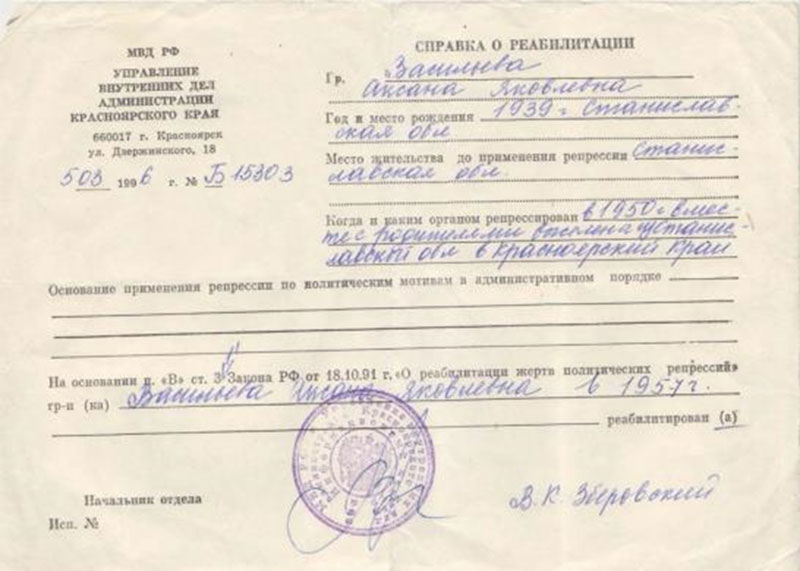 МВД РФ
УПРАВЛЕНИЕ
ВНУТРЕННИХ ДЕЛ
АДМИНИСТРАЦИИ
КРАСНОЯРСКОГО КРАЯ
660017 г. Красноярск
ул. Дзержинского, 18
503 1996 г. № Б 15303
СПРАВКА О РЕАБИЛИТАЦИИ
Гр. Васильева
Аксана Яковлевна
Год и место рождения 1939 г Станислав-
ская обл
Место жительства до применения репрессии Станис-
лавская обл.
Когда и каким органом репрессирован в 1950 г вмес-
те с родителями выслана из Станис-
лавской обл в Красноярский край
Основание применения репрессии по политическим мотивам в административном порядке
На основании п. «В» ст. 3 Закона РФ от 18.10.91 г. «О реабилитации жертв политических репрессий»
гр-н (ка) Васильева Аксана Яковлевна в 1957 г.
реабилитирован (а)
Начальник отдела
В. К. Зберовский
Исп. №